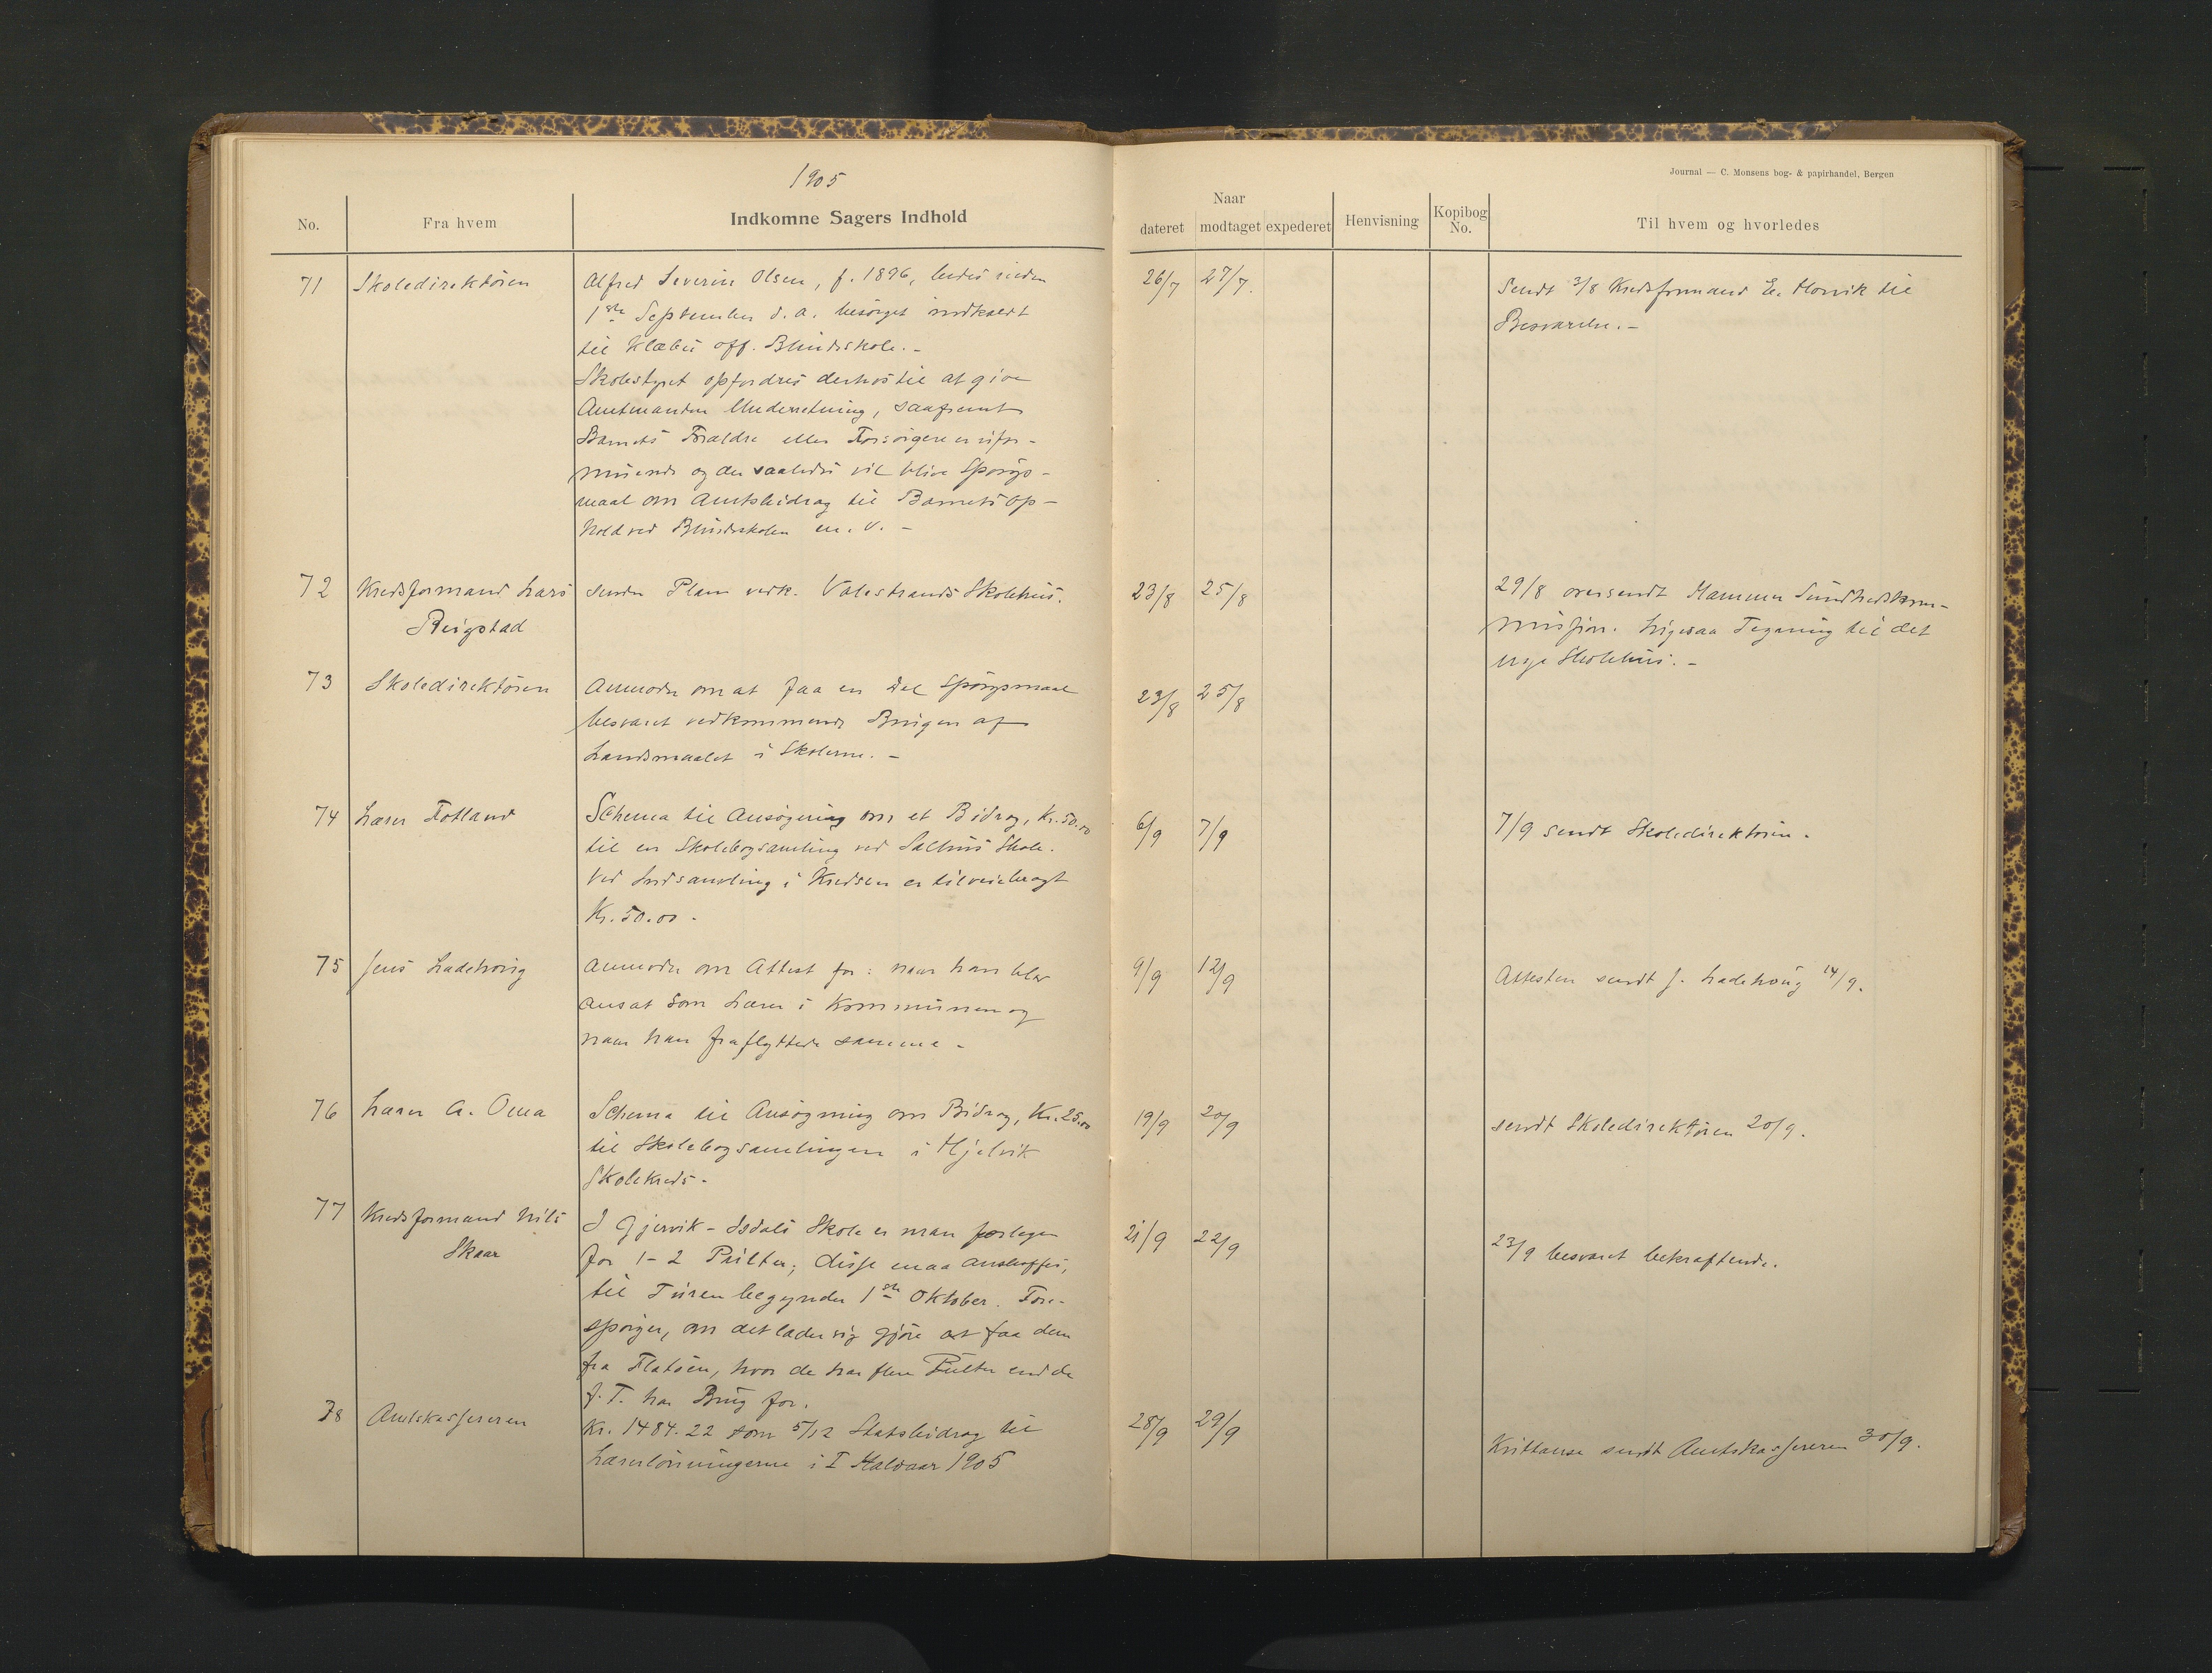 1905
Journal — C. Monsens bog- & papirhandel, Bergen
No. Fra hvem Indkomne Sagers Indhold Naar dateret modtaget expederet Henvisning Kopibog No. Til hvem og hvorledes
71 Skoledirektören Alfred Severin Olsen, f. 1896, bedes inden 26/7 27/7. Sendt 3/8 Kredsformand E. Horvik til
1ste September d. a. besörget indkaldt Besvarelse. —
til Klæbu off. Blindeskole. —
Skolestyret opfordres derhos til at give
Amtmanden Underretning, saafremt
Barnets Forældre eller Forsörgere er ufor-
muende og der saaledes vil blive Spörgs-
maal om Amtsbidrag til Barnets Op-
hold ved Blindeskolen m. v. —
72 Kredsformand Lars sender Plan vedk. Valestrands Skolehus. 23/8 25/8 29/8 oversendt Hammer Sundhedskom-
Reigstad mission. Ligesaa Tegning til det
nye Skolehus. —
73 Skoledirektören Anmoder om at faa en Del Spörgsmaal 23/8 25/8
besvaret vedkommende Brugen af
Landsmaalet i Skolerne. —
74 Lærer Fotland Schema til Ansögning om et Bidrag, Kr. 50.00 6/9 7/9 7/9 sendt Skoledirektören.
til en Skolebogsamling ved Salhus Skole.
Ved Indsamling i Kredsen er tilveiebragt
Kr. 50.00 -
75 Jens Ladehoug Anmoder om Attest for: naar han blev 9/9 12/9 Attesten sendt J. Ladehoug 14/9.
ansat som Lærer i Kommunen og
naar han fraflyttede samme -
76 Lærer A. Oma Schema til Ansögning om Bidrag, Kr. 25.00 19/9 20/9 sendt Skoledirektören 20/9.
til Skolebogsamlingen i Hjelvik
Skolekreds -
77 Kredsformand Nils I Gjervik - Isdals Skole er man forlegen 21/9 22/9 23/9 besvaret bekræftende.
Skaar for 1-2 Pulter; disse maa anskaffes,
til Turen begynder 1ste Oktober. Fore-
spörger, om det lader sig gjöre at faa dem
fra Flatöen, hvor de har flere Pulter end de
f. T. har Brug for.
78 Amtskassereren Kr. 1484.22 som 5/12 Statsbidrag til 28/9 29/9 Kvittance sendt Amtskassereren 30/9.
Lærerlönningerne i I Halvaar 1905